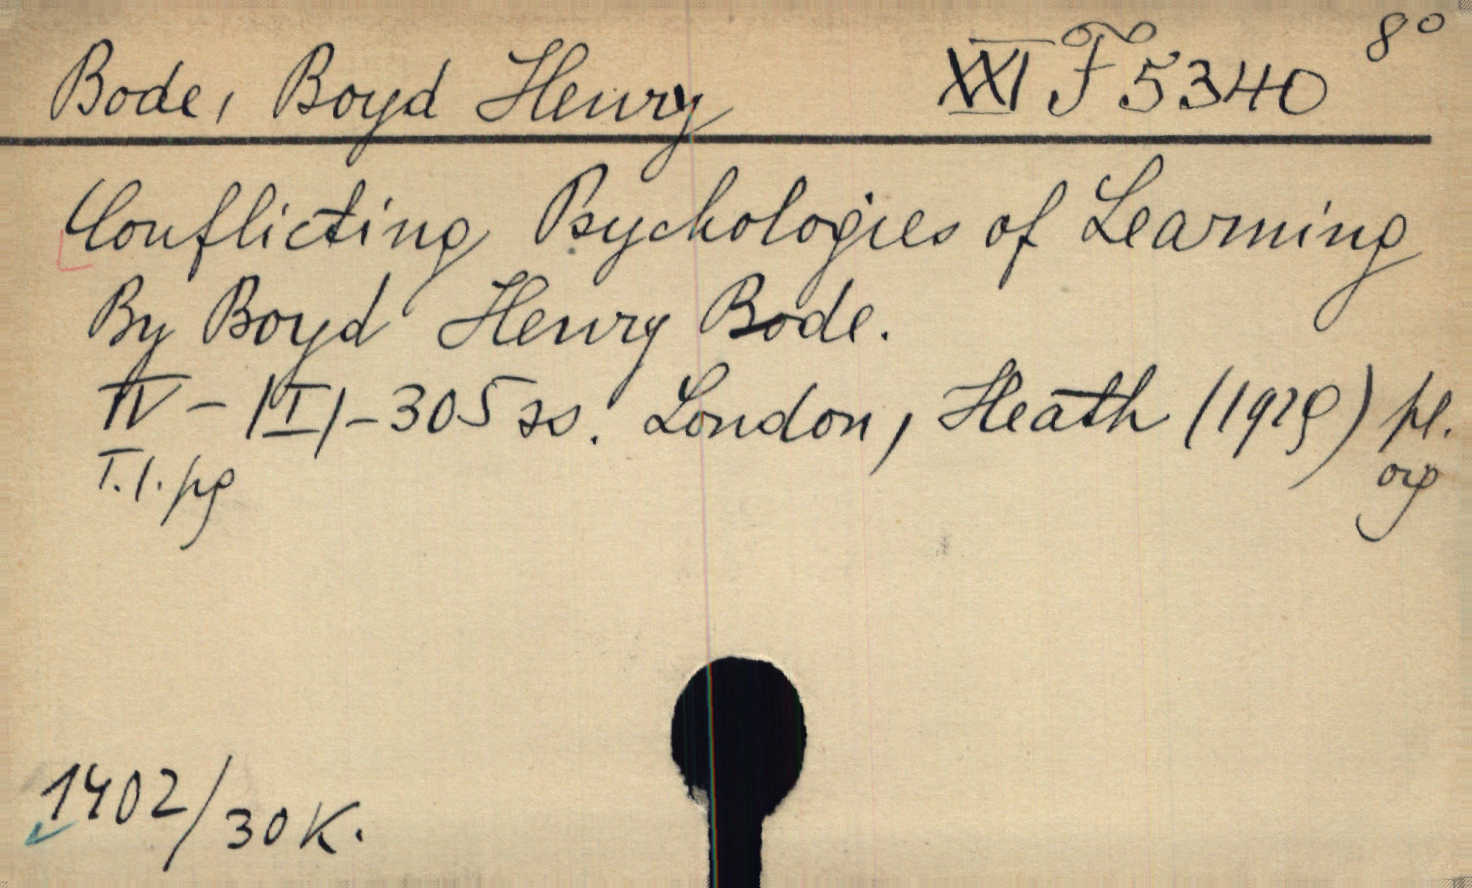 Bode, Boyd Henry XXI F 5340 8°
Conflicting Psychologies of Learning
By Boyd Henry Bode.
IV – |I| – 305 ss. London, Heath (1929) pł.
T. 1. pg org
1402/30 K.